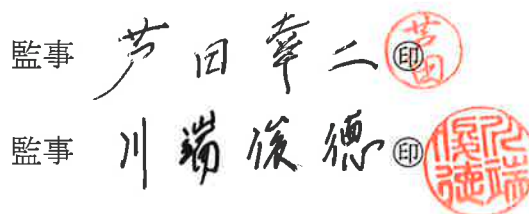 監事 芦田幸二 ㊞ 芦田
監事 川端俊徳 ㊞ 川端俊徳